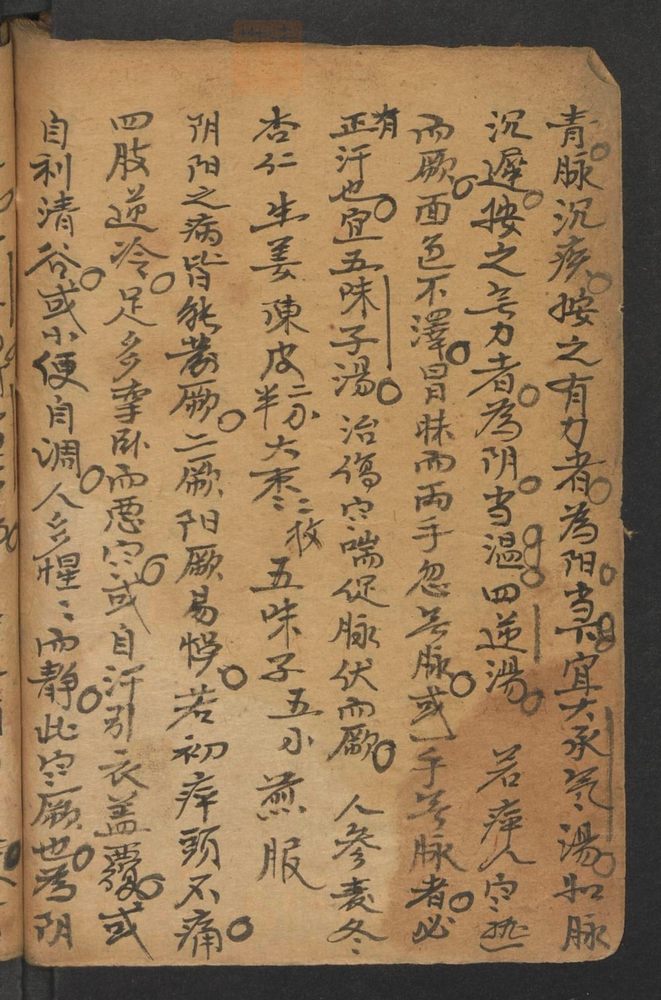 青脉沉疾按之有力者為阳当下宜大承气湯如脉
沉遲按之无力者為阴当温四逆湯 若病人寒热
而厥面色不澤冒昧而両手忽无脉或一手无脉者必
有正汗也宜五味子湯治傷寒喘促脉伏而厥 人參麦冬
杏仁生姜陳皮二分半大枣二枚 五味子五分 煎服
阴阳之病皆能發厥二厥阳厥易悞若初病頭不痛
四肢逆冷足多挛卧而恶寒或自汗引衣盖覆或
自利清谷或小便自调人多惺〻而静此寒厥也為阴